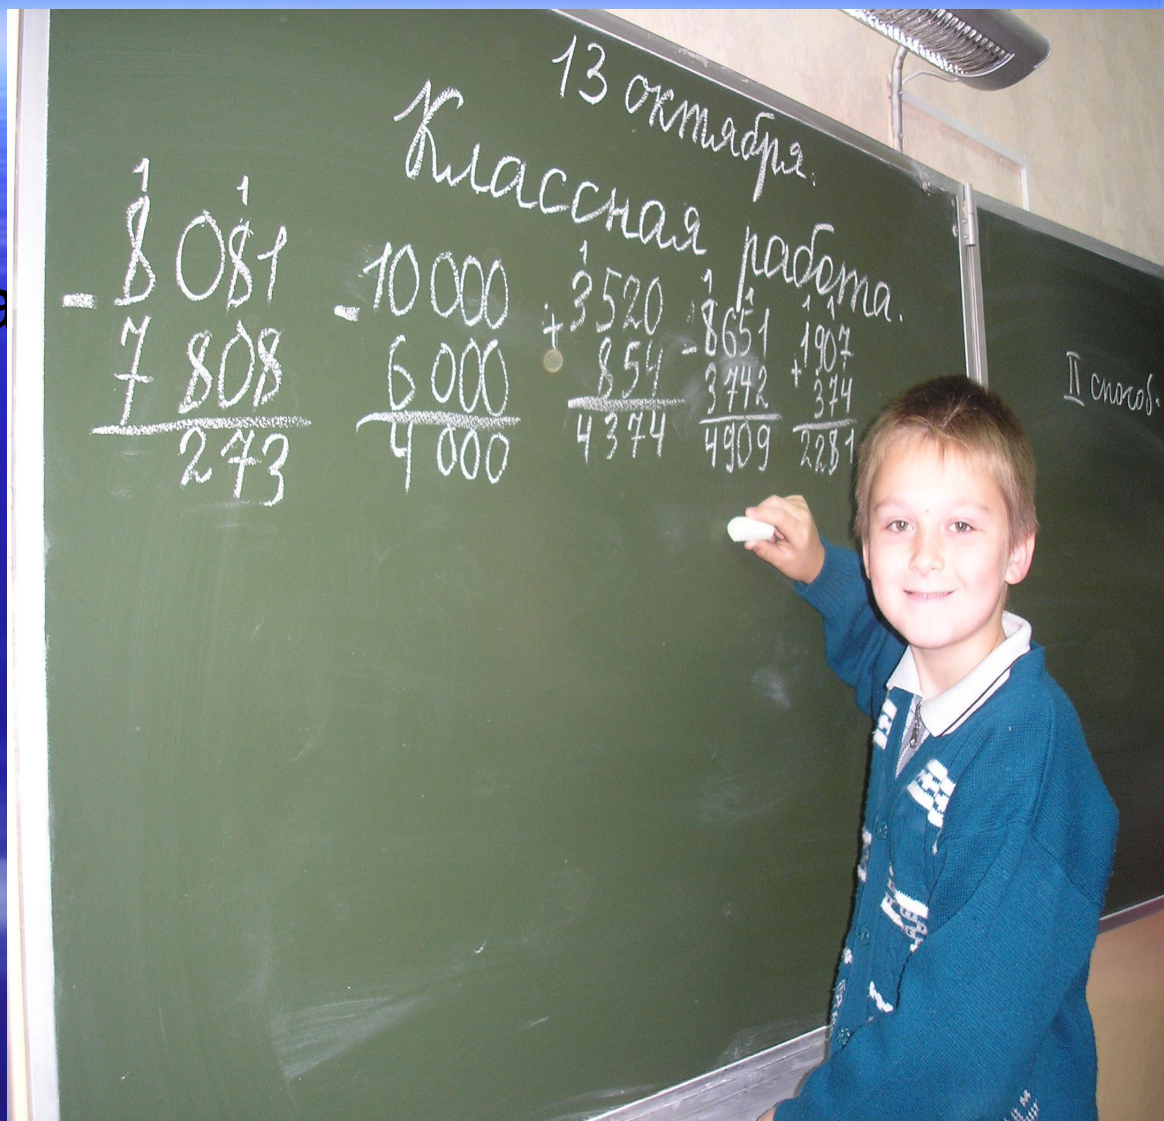 13 октября.
Классная работа.
1 1
- 8 081
7 808
273
- 10 000
6 000
4 000
1
+ 3 520
854
4 374
1 1
- 8651
3742
4909
1 1
+ 1907
374
2281
II способ.